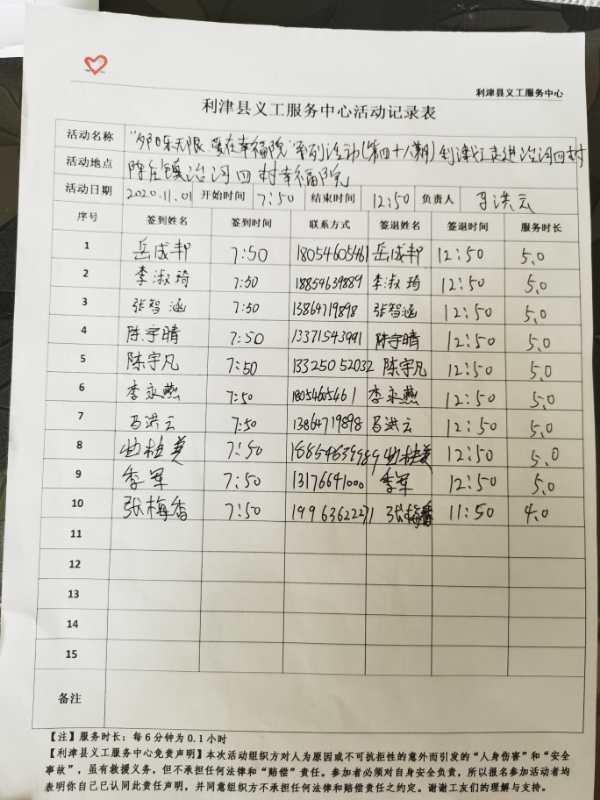 利津县义工服务中心
利津县义工服务中心活动记录表
活动名称 "邻乐无限 爱在幸福院"系列活动(第四十八期)利津义工走进沿河四村
活动地点 陈庄镇沿河四村幸福院
活动日期 2020.11.01 开始时间 7:50 结束时间 12:50 负责人 马洪云
序号 签到姓名 签到时间 联系方式 签退姓名 签退时间 服务时长
1 岳成邦 7:50 18054605461 岳成邦 12:50 5.0
2 李淑琦 7:50 18854639889 李淑琦 12:50 5.0
3 张智涵 7:50 13864719898 张智涵 12:50 5.0
4 陈宇晴 7:50 陈宇晴 12:50 5.0
5 陈宇凡 7:50 13325052032 陈宇凡 12:50 5.0
6 李永燕 7:50 18054605461 李永燕 12:50 5.0
7 马洪云 7:50 13864719898 马洪云 12:50 5.0
8 7:50 12:50 5.0
9 季军 7:50 13176641000 季军 12:50 5.0
10 张梅香 7:50 19963622271 张梅香 11:50 4.0
11
12
13
14
15
备注
【注】服务时长:每6分钟为0.1小时
【利津县义工服务中心免责声明】本次活动组织方对人为原因或不可抗拒性的意外而引发的"人身伤害"和"安全
事故",虽有救援义务,但不承担任何法律和"赔偿"责任。参加者必须对自身安全负责,所以报名参加活动者均
表明你自己已认同此责任声明,并同意组织方不承担任何法律和赔偿责任之约定。谢谢工友们的理解与支持。